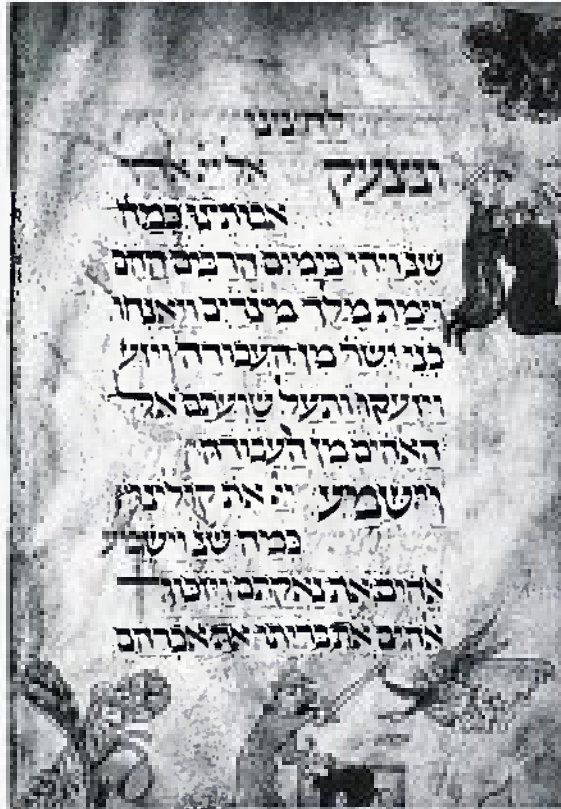 לחצינו
ונצעק אל יי אלהי
אבותינו כמה
שנ ויהי בימים הרבים ההם
וימת מלך מצרים ויאנחו
בני ישר מן העבודה ויזע
ויזעקו ותעל שועתם אל
האהים מן העבודה
וישמע יי את קולינו
כמה שנ וישמע
אהים את נאקתם ויזכור
אהים את בריתו את אברהם